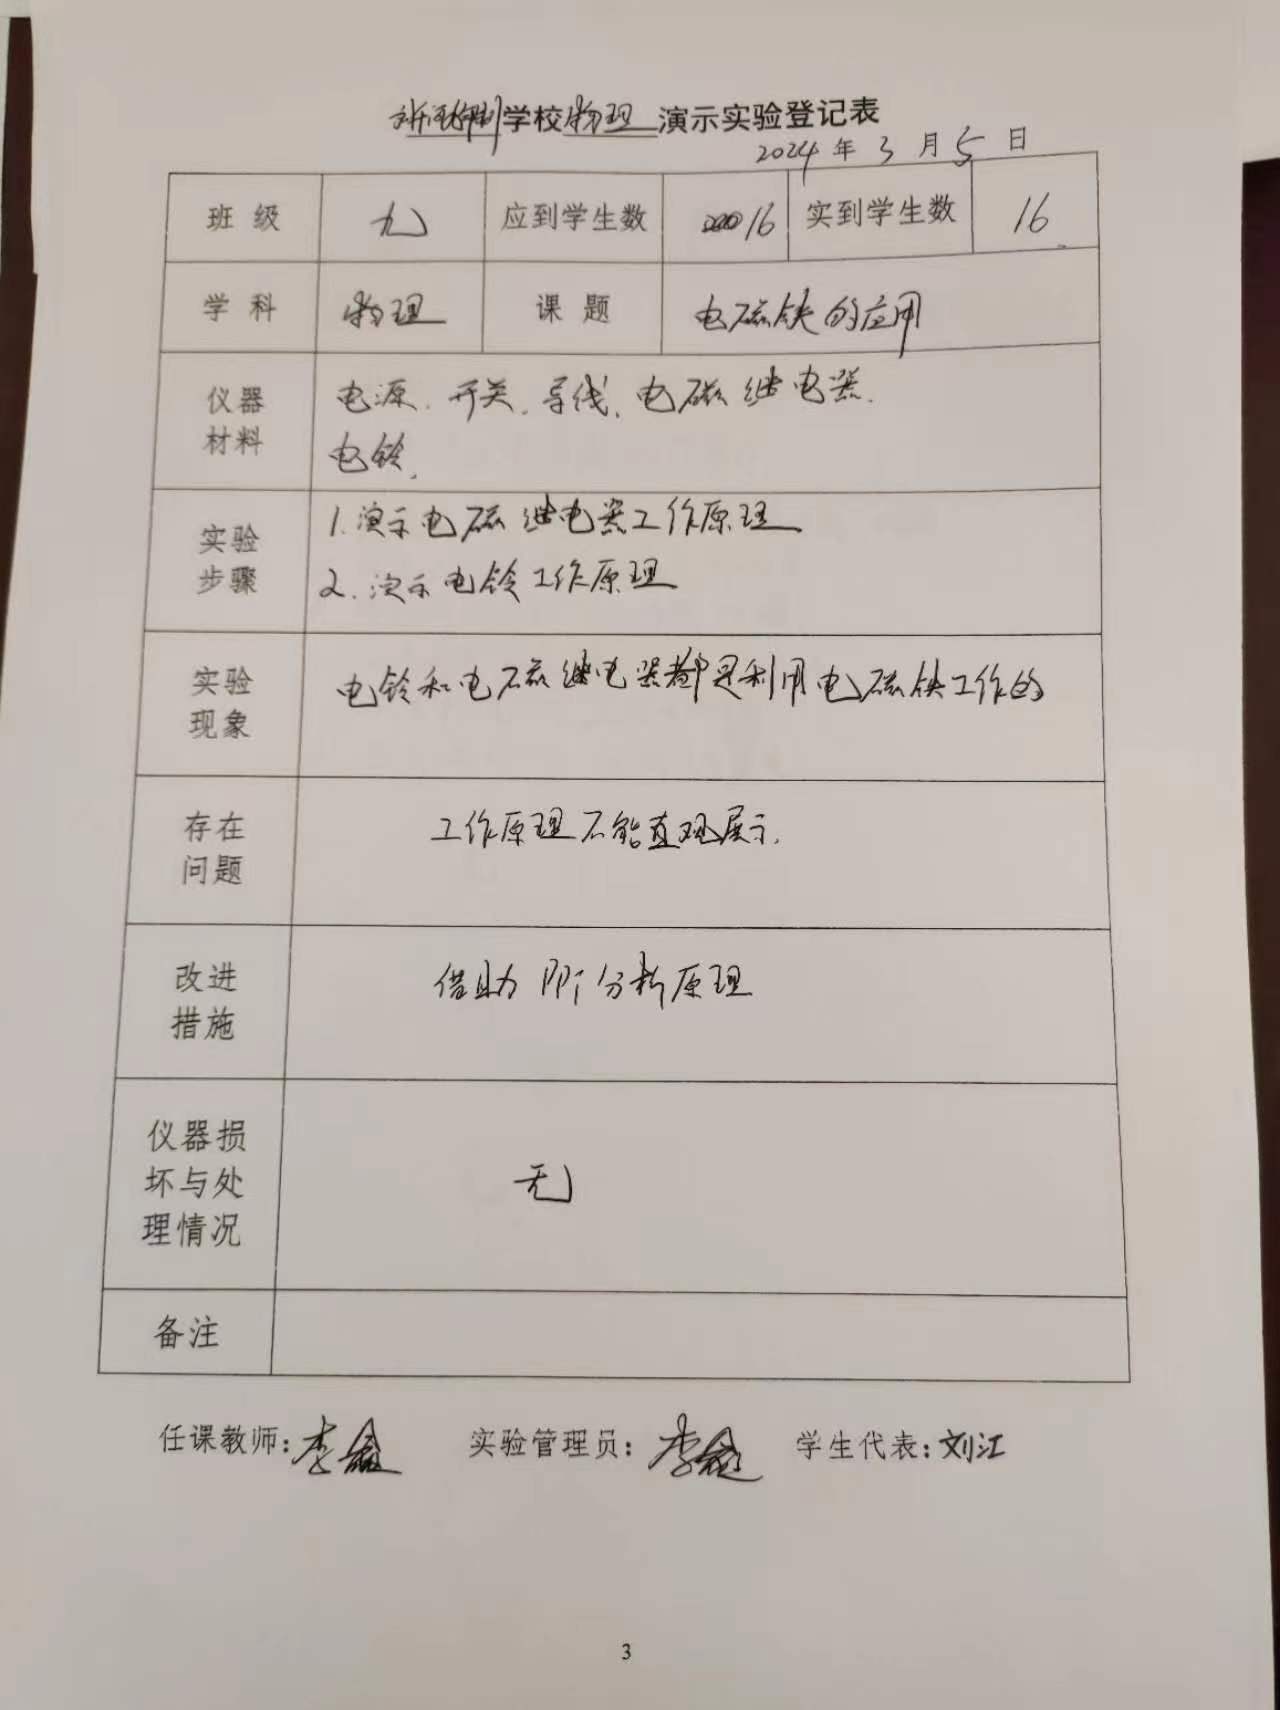 学校物理演示实验登记表
2024年3月5日
班级 九 应到学生数 16 实到学生数 16
学科 物理 课题 电磁铁的应用
仪器材料 电源、开关、导线、电磁继电器、
电铃、
实验步骤 1.演示电磁继电器工作原理
2.演示电铃工作原理
实验现象 电铃和电磁继电器都是利用电磁铁工作的
存在问题 工作原理不能直观展示.
改进措施 借助PPT分析原理
仪器损坏与处理情况 无
备注
任课教师:李鑫 实验管理员:李鑫 学生代表:刘江
3